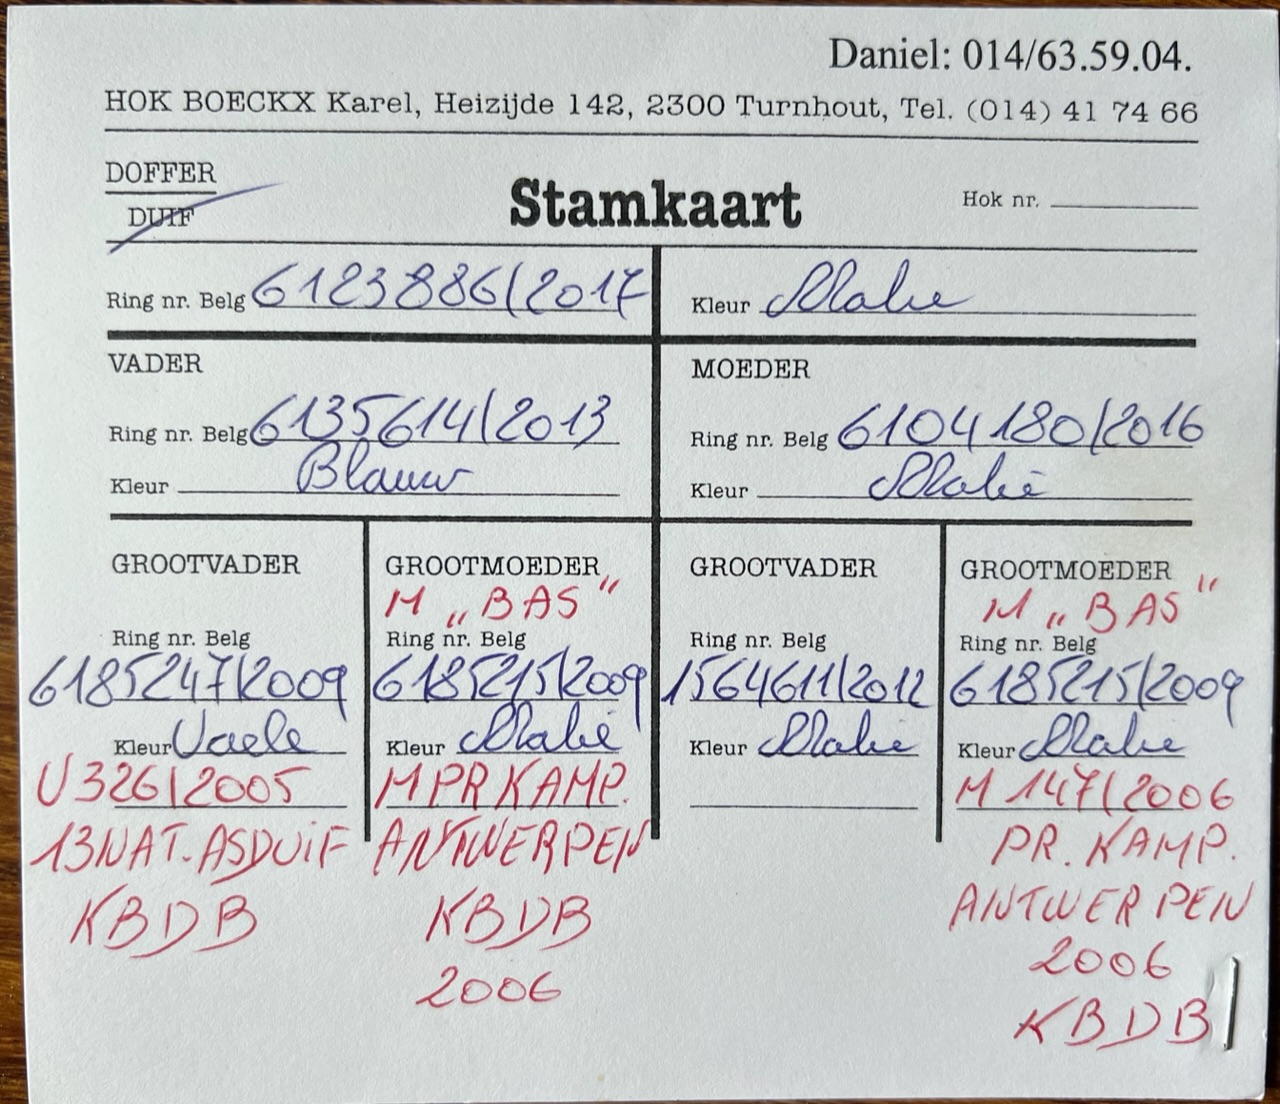 Daniel: 014/63.59.04.
HOK BOECKX Karel, Heizijde 142, 2300 Turnhout, Tel. (014) 41 74 66
DOFFER
DUIF
Stamkaart
Hok nr.
Ring nr. Belg 6123886/2017
Kleur
VADER
Ring nr. Belg 6135614/2013
Kleur Blauw
MOEDER
Ring nr. Belg 6104180/2016
Kleur
GROOTVADER
Ring nr. Belg
6185247/2009
Kleur Vaele
U 326/2005
13 NAT. ASDUIF
KBDB
GROOTMOEDER
M „BAS“
Ring nr. Belg
6185215/2009
Kleur
M PR KAMP.
ANTWERPEN
KBDB
2006
GROOTVADER
Ring nr. Belg
1564611/2012
Kleur
GROOTMOEDER
M „BAS“
Ring nr. Belg
6185215/2009
Kleur
M 147/2006
PR. KAMP.
ANTWERPEN
2006
KBDB